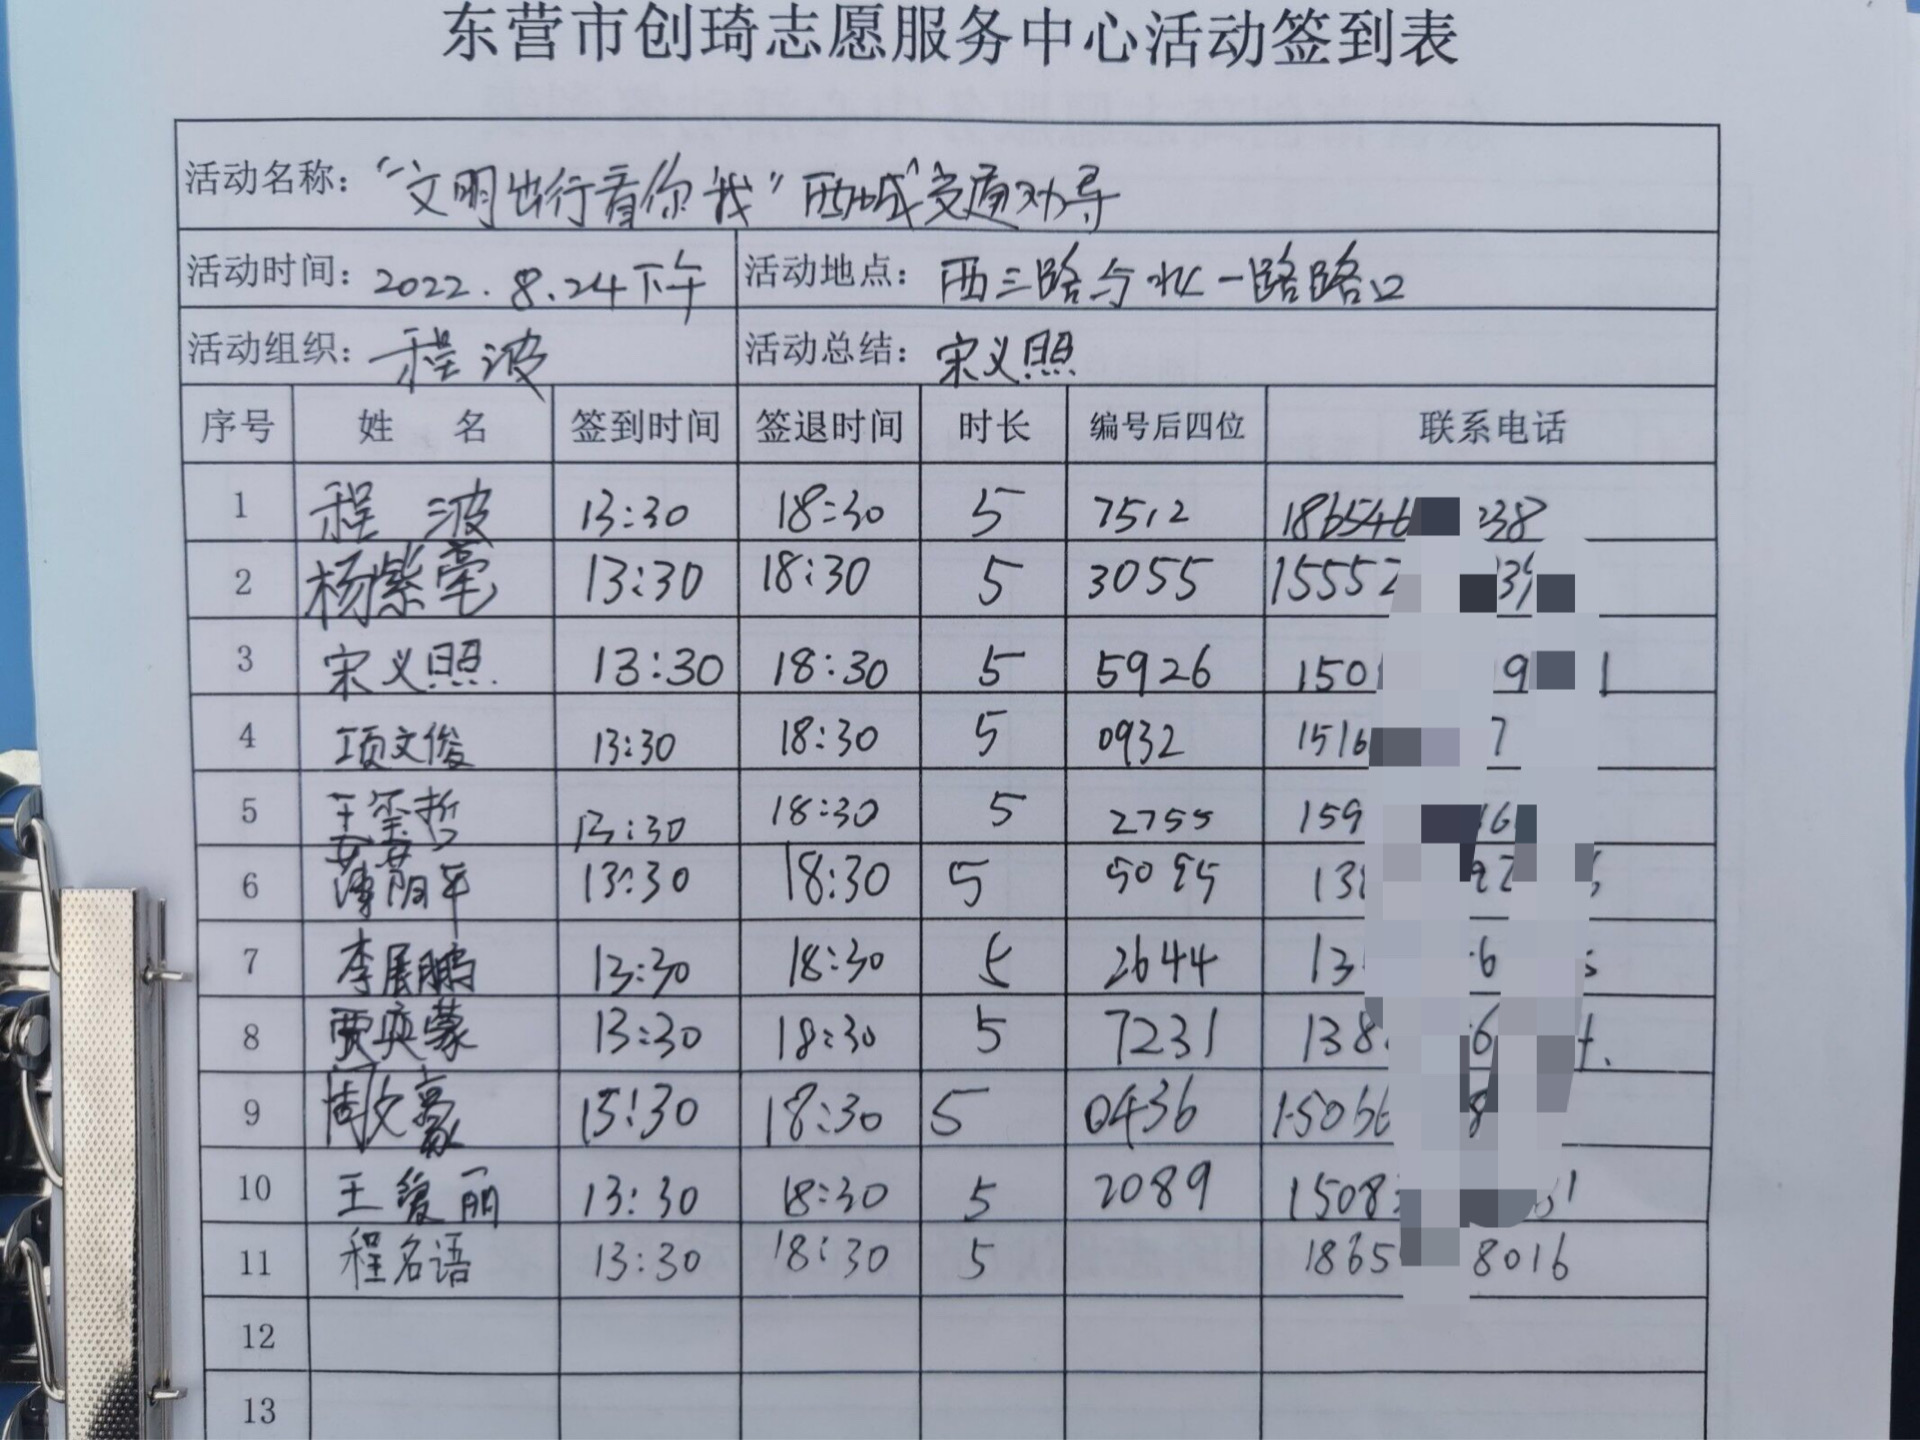 东营市创琦志愿服务中心活动签到表
活动名称：“文明出行看你我”西城交通劝导
活动时间：2022.8.24下午 活动地点：西三路与北一路路口
活动组织：程波 活动总结：宋义照
序号 姓名 签到时间 签退时间 时长 编号后四位 联系电话
1 程波 13:30 18:30 5 7512 186546 238
2 杨紫毫 13:30 18:30 5 3055 15552
3 宋义照 13:30 18:30 5 5926 150 9 1
4 项文俊 13:30 18:30 5 0932 1516 7
5 13:30 18:30 5 2755 159
6 13:30 18:30 5 5095 13
7 李展鹏 13:30 18:30 5 2644 13 6
8 贾英蒙 13:30 18:30 5 7231 138 6
9 周文豪 13:30 18:30 5 0436 15066 8
10 王爱丽 13:30 18:30 5 2089 1508 1
11 程名语 13:30 18:30 5 1865 8016
12
13